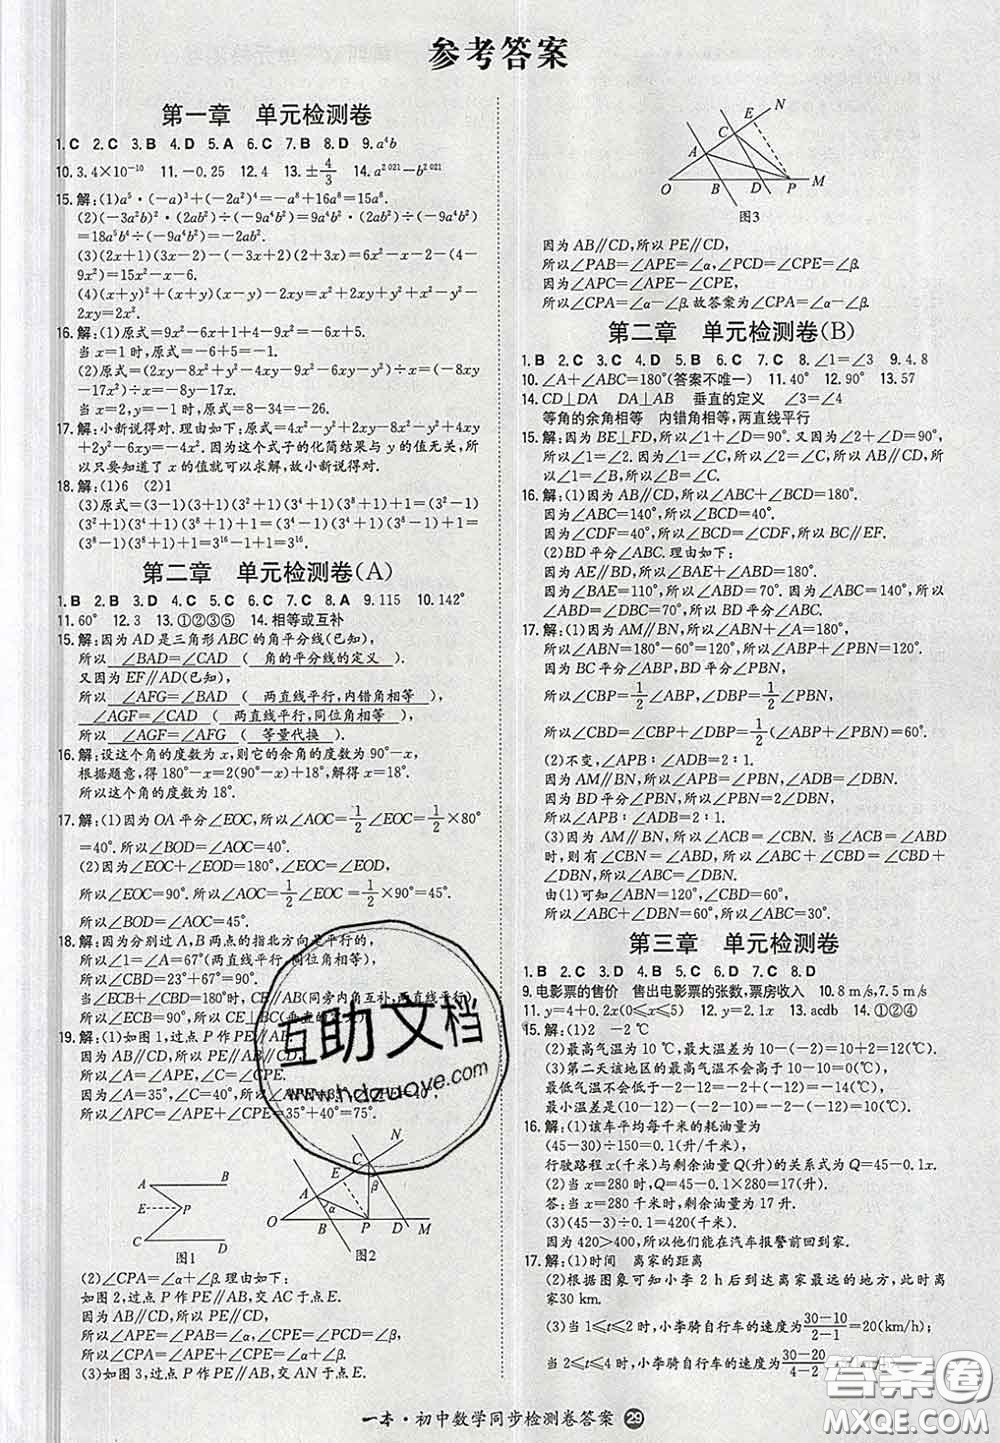 参考答案
第一章 单元检测卷
1.C 2.C 3.B 4.D 5.A 6.C 7.B 8.D 9.a⁴b
10.3.4×10⁻¹⁰ 11.-0.25 12.4 13.±4/3 14.a²⁰²¹-b²⁰²¹
15.解:(1)a⁵·(-a)³+(-2a²)⁴=-a⁸+16a⁸=15a⁸.
(2)(-3a²b)²·(2ab²)÷(-9a⁴b²)=9a⁴b²·(2ab²)÷(-9a⁴b²)
=18a⁵b⁴÷(-9a⁴b²)=-2ab².
(3)(2x+1)(3x-2)-(-3+2x)(2+3x)=6x²-x-2-(4-
9x²)=15x²-x-6.
(4)(x+y)²+(x+y)(x-y)-2xy=x²+2xy+y²+x²-y²-
2xy=2x².
16.解:(1)原式=9x²-6x+1+4-9x²=-6x+5.
当x=1时,原式=-6+5=-1.
(2)原式=(2xy-8x²+y²-4xy-9x²-y²-6xy)÷x=(-8xy
-17x²)÷x=-8y-17x.
当x=2,y=-1时,原式=8-34=-26.
17.解:小新说得对.理由如下:原式=4x²-y²+2xy-8x²-y²+4xy
+2y²-6xy=-4x².因为这个式子的化简结果与y的值无关,
所以只要知道了x的值就可以求解,故小新说得对.
18.解:(1)6 (2)1
(3)原式=(3-1)(3+1)(3²+1)(3⁴+1)(3⁸+1)+1=(3²-1)
(3²+1)(3⁴+1)(3⁸+1)+1=(3⁴-1)(3⁴+1)(3⁸+1)+1=
(3⁸-1)(3⁸+1)+1=3¹⁶-1+1=3¹⁶.
第二章 单元检测卷(A)
1.B 2.B 3.D 4.C 5.C 6.C 7.C 8.A 9.115 10.142°
11.60° 12.3 13.①②③⑤ 14.相等或互补
15.解:因为AD是三角形ABC的角平分线(已知),
所以 ∠BAD=∠CAD ( 角的平分线的定义 ).
又因为EF∥AD(已知),
所以 ∠AFG=∠BAD ( 两直线平行,内错角相等 ),
∠AGF=∠CAD ( 两直线平行,同位角相等 ),
所以 ∠AGF=∠AFG ( 等量代换 ).
16.解:设这个角的度数为x,则它的余角的度数为90°-x,
根据题意,得180°-x=2(90°-x)+18°,解得x=18°.
所以这个角的度数为18°.
17.解:(1)因为OA平分∠EOC,所以∠AOC=1/2∠EOC=1/2×80°
=40°.所以∠BOD=∠AOC=40°.
(2)因为∠EOC+∠EOD=180°,∠EOC=∠EOD,
所以∠EOC=90°.所以∠AOC=1/2∠EOC=1/2×90°=45°.
所以∠BOD=∠AOC=45°.
18.解:因为分别过A,B两点的指北方向是平行的,
所以∠1=∠A=67°(两直线平行,同位角相等).
所以∠CBD=23°+67°=90°.
当∠ECB+∠CBD=180°时,CE∥AB(同旁内角互补,两直线平行),
所以∠ECB=90°.所以CE⊥BC(垂直的定义).
19.解:(1)如图1,过点P作PE∥AB.
因为AB∥CD,所以PE∥AB∥CD.
所以∠A=∠APE,∠C=∠CPE.
因为∠A=35°,∠C=40°,所以∠APE=35°,∠CPE=40°.
所以∠APC=∠APE+∠CPE=35°+40°=75°.
A B
E P
C D
图1
N
C
E
β
A
α
O B P D M
图2
(2)∠CPA=∠α+∠β.理由如下:
如图2,过点P作PE∥AB,交AC于点E.
因为AB∥CD,所以PE∥CD,
所以∠APE=∠PAB=∠α,∠CPE=∠PCD=∠β,
所以∠CPA=∠APE+∠CPE=∠α+∠β.
(3)如图3,过点P作PE∥AB,交ON于点E.
N
E
C
A
O B D P M
图3
因为AB∥CD,所以PE∥CD,
所以∠PAB=∠APE=∠α,∠PCD=∠CPE=∠β.
因为∠APC=∠APE-∠CPE,
所以∠CPA=∠α-∠β.故答案为∠CPA=∠α-∠β.
第二章 单元检测卷(B)
1.B 2.C 3.C 4.D 5.B 6.C 7.C 8.∠1=∠3 9.4.8
10.∠A+∠ABC=180°(答案不唯一) 11.40° 12.90° 13.57
14.CD⊥DA DA⊥AB 垂直的定义 ∠3=∠4
等角的余角相等 内错角相等,两直线平行
15.解:因为BE⊥FD,所以∠1+∠D=90°.又因为∠2+∠D=90°,
所以∠1=∠2.因为∠C=∠1,所以∠C=∠2,
所以AB∥CD.所以∠B=∠C.
16.解:(1)因为AB∥CD,所以∠ABC+∠BCD=180°.
因为∠ABC=140°,所以∠BCD=40°.
因为∠CDF=40°,所以∠BCD=∠CDF,所以BC∥EF.
(2)BD平分∠ABC.理由如下:
因为AE∥BD,所以∠BAE+∠ABD=180°.
因为∠BAE=110°,所以∠ABD=70°.因为∠ABC=140°,
所以∠DBC=70°,所以BD平分∠ABC.
17.解:(1)因为AM∥BN,所以∠ABN+∠A=180°,
所以∠ABN=180°-60°=120°,所以∠ABP+∠PBN=120°.
因为BC平分∠ABP,BD平分∠PBN,
所以∠CBP=1/2∠ABP,∠DBP=1/2∠PBN,
所以∠CBD=∠CBP+∠DBP=1/2(∠ABP+∠PBN)=60°.
(2)不变,∠APB∶∠ADB=2∶1.
因为AM∥BN,所以∠APB=∠PBN,∠ADB=∠DBN.
因为BD平分∠PBN,所以∠PBN=2∠DBN.
所以∠APB∶∠ADB=2∶1.
(3)因为AM∥BN,所以∠ACB=∠CBN.当∠ACB=∠ABD
时,则有∠CBN=∠ABD,所以∠ABC+∠CBD=∠CBD+
∠DBN,所以∠ABC=∠DBN.
由(1)可知∠ABN=120°,∠CBD=60°,
所以∠ABC+∠DBN=60°,所以∠ABC=30°.
第三章 单元检测卷
1.B 2.C 3.C 4.D 5.B 6.D 7.C 8.D
9.电影票的售价 售出电影票的张数,票房收入 10.8 m/s,7.5 m/s
11.y=4+0.2x(0≤x≤5) 12.y=2.1x 13.acdb 14.①②④
15.解:(1)2 -2 ℃
(2)最高气温为10 ℃,最大温差为10-(-2)=10+2=12(℃).
(3)第二天该地区的最高气温不会高于10-10=0(℃),
最低气温不会低于-2-12=-2+(-12)=-14(℃),
最小温差是(-10-2)-(-2-10)=-12-(-12)=0(℃).
16.解:(1)该车平均每千米的耗油量为
(45-30)÷150=0.1(升/千米),
行驶路程x(千米)与剩余油量Q(升)的关系式为Q=45-0.1x.
(2)当x=280时,Q=45-0.1×280=17(升).
答:当x=280千米时,剩余油量为17升.
(3)(45-3)÷0.1=420(千米),
因为420>400,所以他们能在汽车报警前回到家.
17.解:(1)时间 离家的距离
(2)根据图象可知小李2 h后到达离家最远的地方,此时离
家30 km.
(3)当1≤t≤2时,小李骑自行车的速度为(30-10)/(2-1)=20(km/h);
当2≤t≤4时,小李骑自行车的速度为(30-20)/(4-2)
一本·初中数学同步检测卷答案 29
互助文档
www.hdzuoye.com
答案圈
MXQE.COM